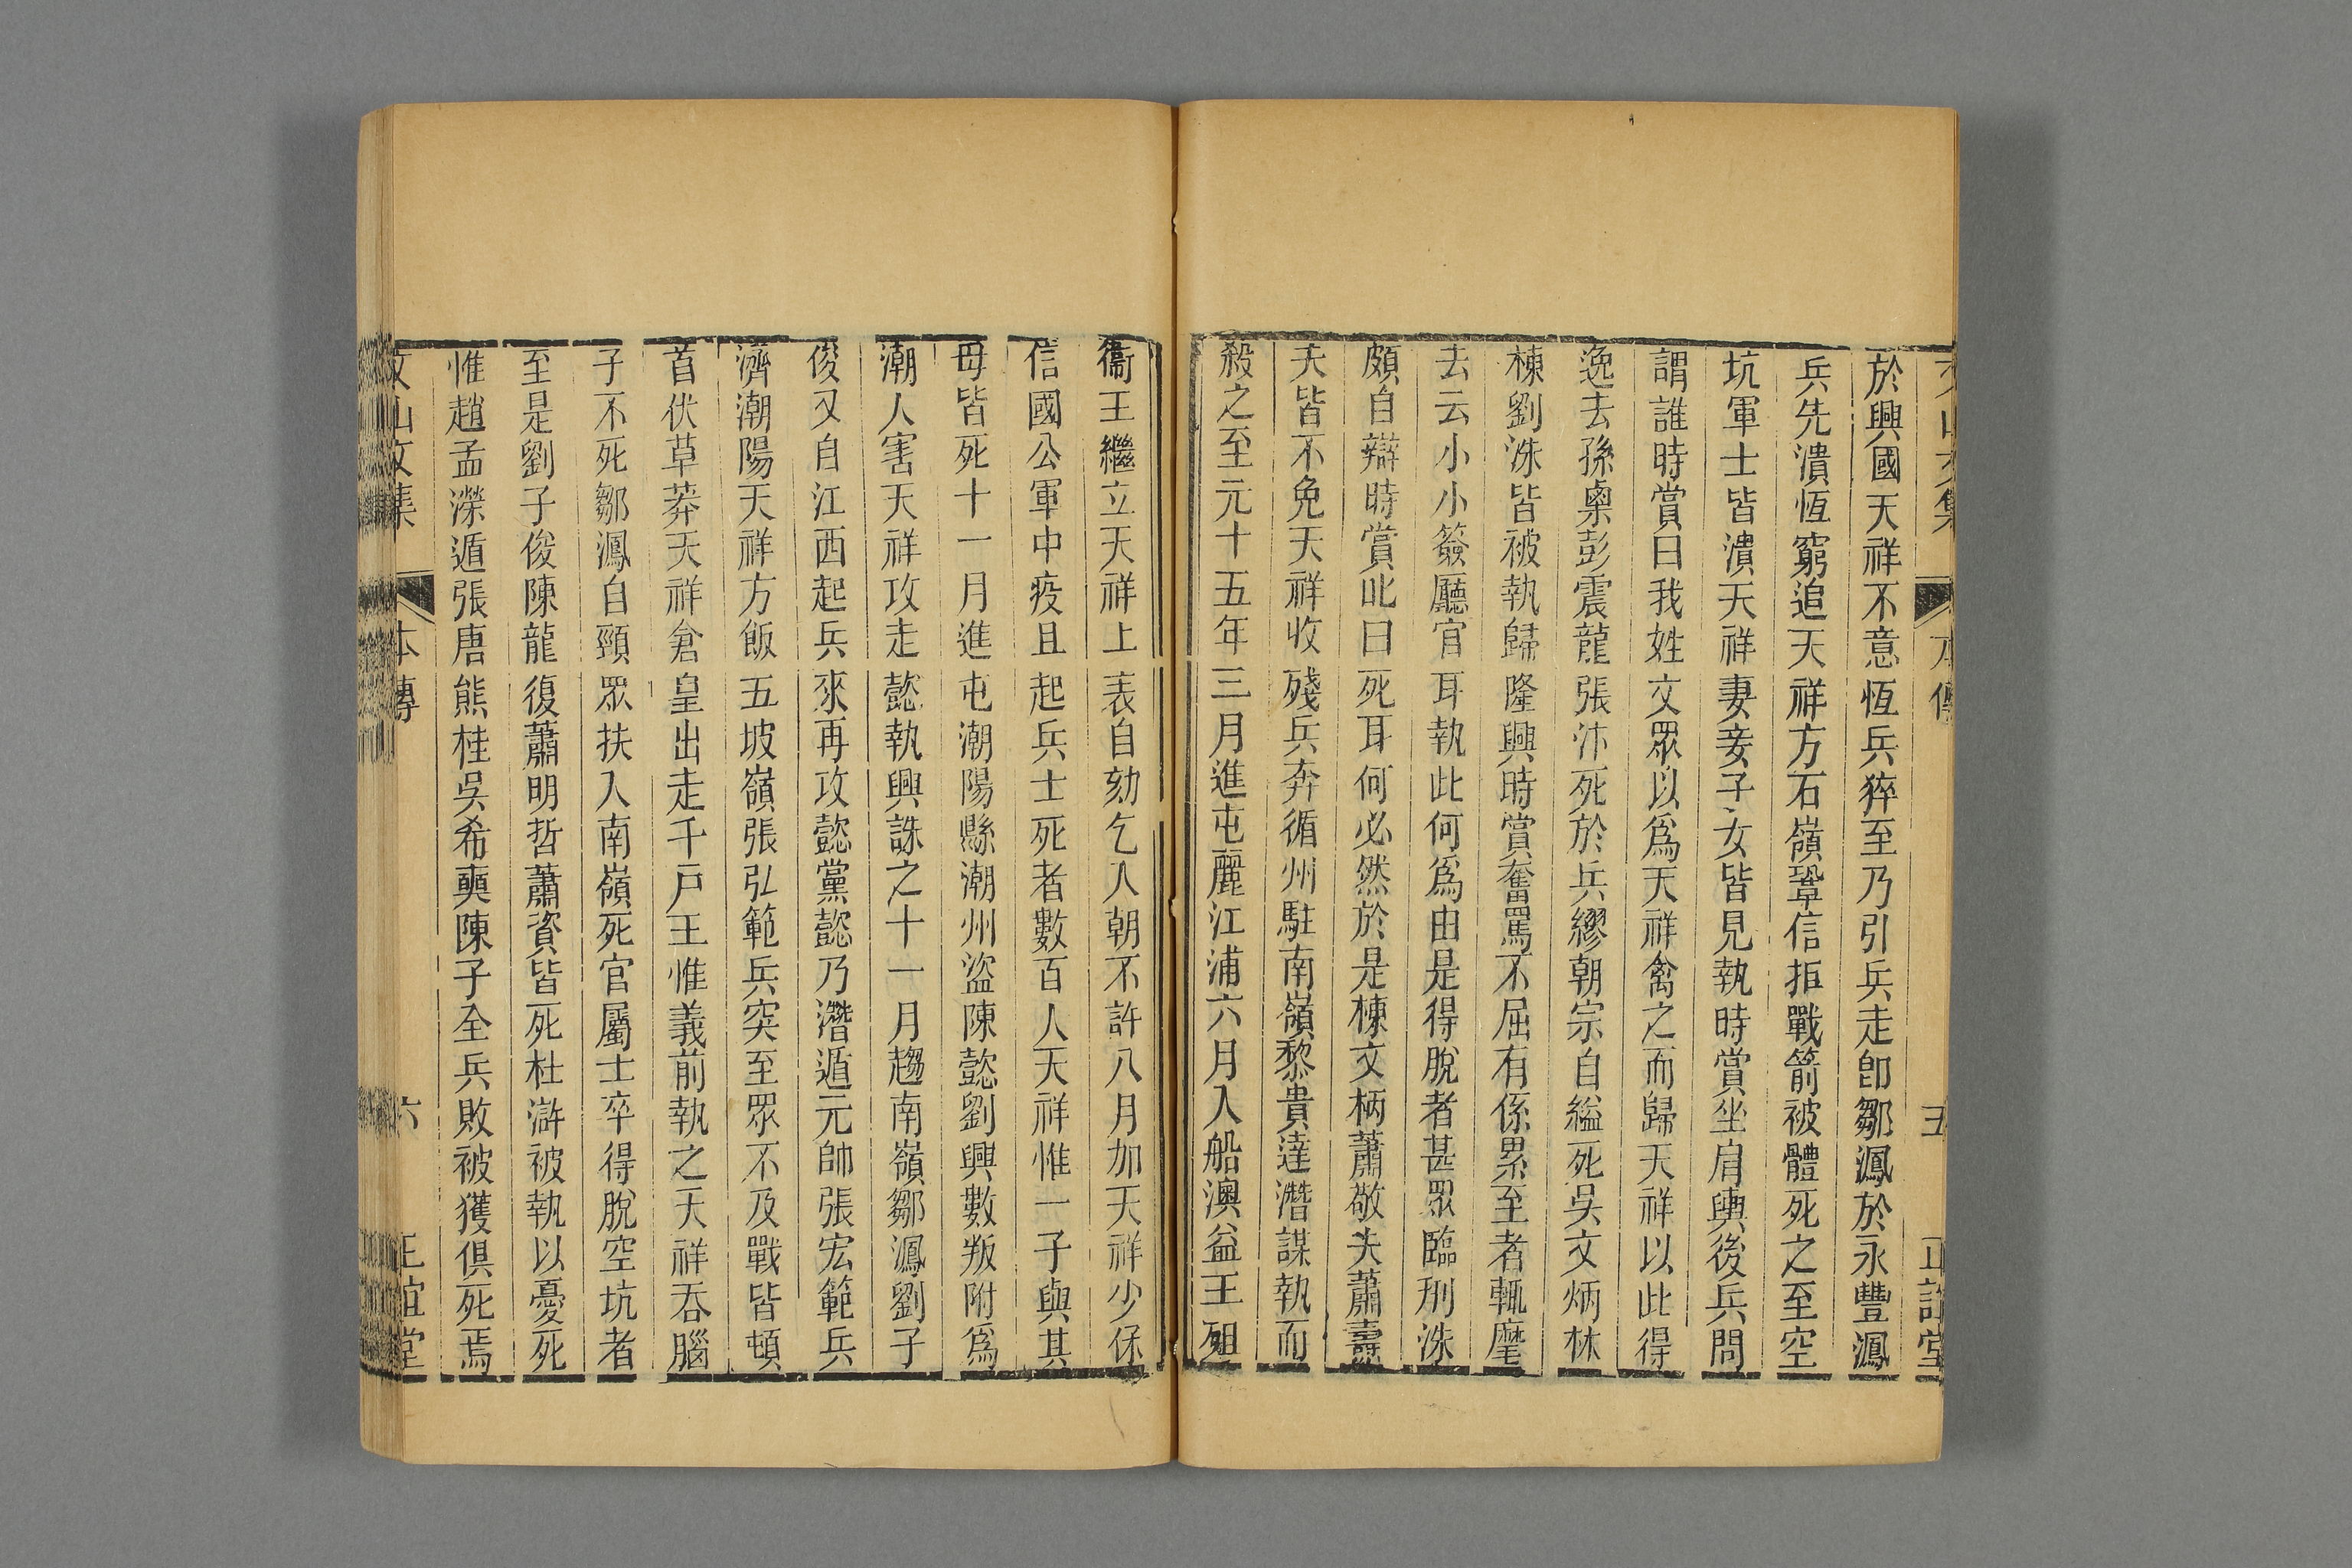 文山文集 本傳 五 正誼堂
於興國天祥不意恆兵猝至乃引兵走卽鄒㵯於永豐㵯
兵先潰恆窮追天祥方石嶺鞏信拒戰箭被體死之至空
坑軍士皆潰天祥妻妾子女皆見執時賞坐肩輿後兵問
謂誰時賞曰我姓文眾以爲天祥禽之而歸天祥以此得
逸去孫㮚彭震龍張汴死於兵繆朝宗自縊死吳文炳林
棟劉洙皆被執歸隆興時賞奮罵不屈有係累至者輒麾
去云小小簽廳官耳執此何爲由是得脫者甚眾臨刑洙
頗自辯時賞叱曰死耳何必然於是棟文柄蕭敬夫蕭壽
夫皆不免天祥收殘兵奔循州駐南嶺黎貴達潛謀執而
殺之至元十五年三月進屯麗江浦六月入船澳益王殂
衞王繼立天祥上表自劾乞入朝不許八月加天祥少保
信國公軍中疫且起兵士死者數百人天祥惟一子與其
母皆死十一月進屯潮陽縣潮州盜陳懿劉興數叛附爲
潮人害天祥攻走懿執興誅之十一月趨南嶺鄒㵯劉子
俊又自江西起兵來再攻懿黨懿乃潛遁元帥張宏範兵
濟潮陽天祥方飯五坡嶺張弘範兵突至眾不及戰皆頓
首伏草莽天祥倉皇出走千戶王惟義前執之天祥吞腦
子不死鄒㵯自頸眾扶入南嶺死官屬士卒得脫空坑者
至是劉子俊陳龍復蕭明哲蕭資皆死杜滸被執以憂死
惟趙孟濚遁張唐熊桂吳希奭陳子全兵敗被獲俱死焉
文山文集 本傳 六 正誼堂